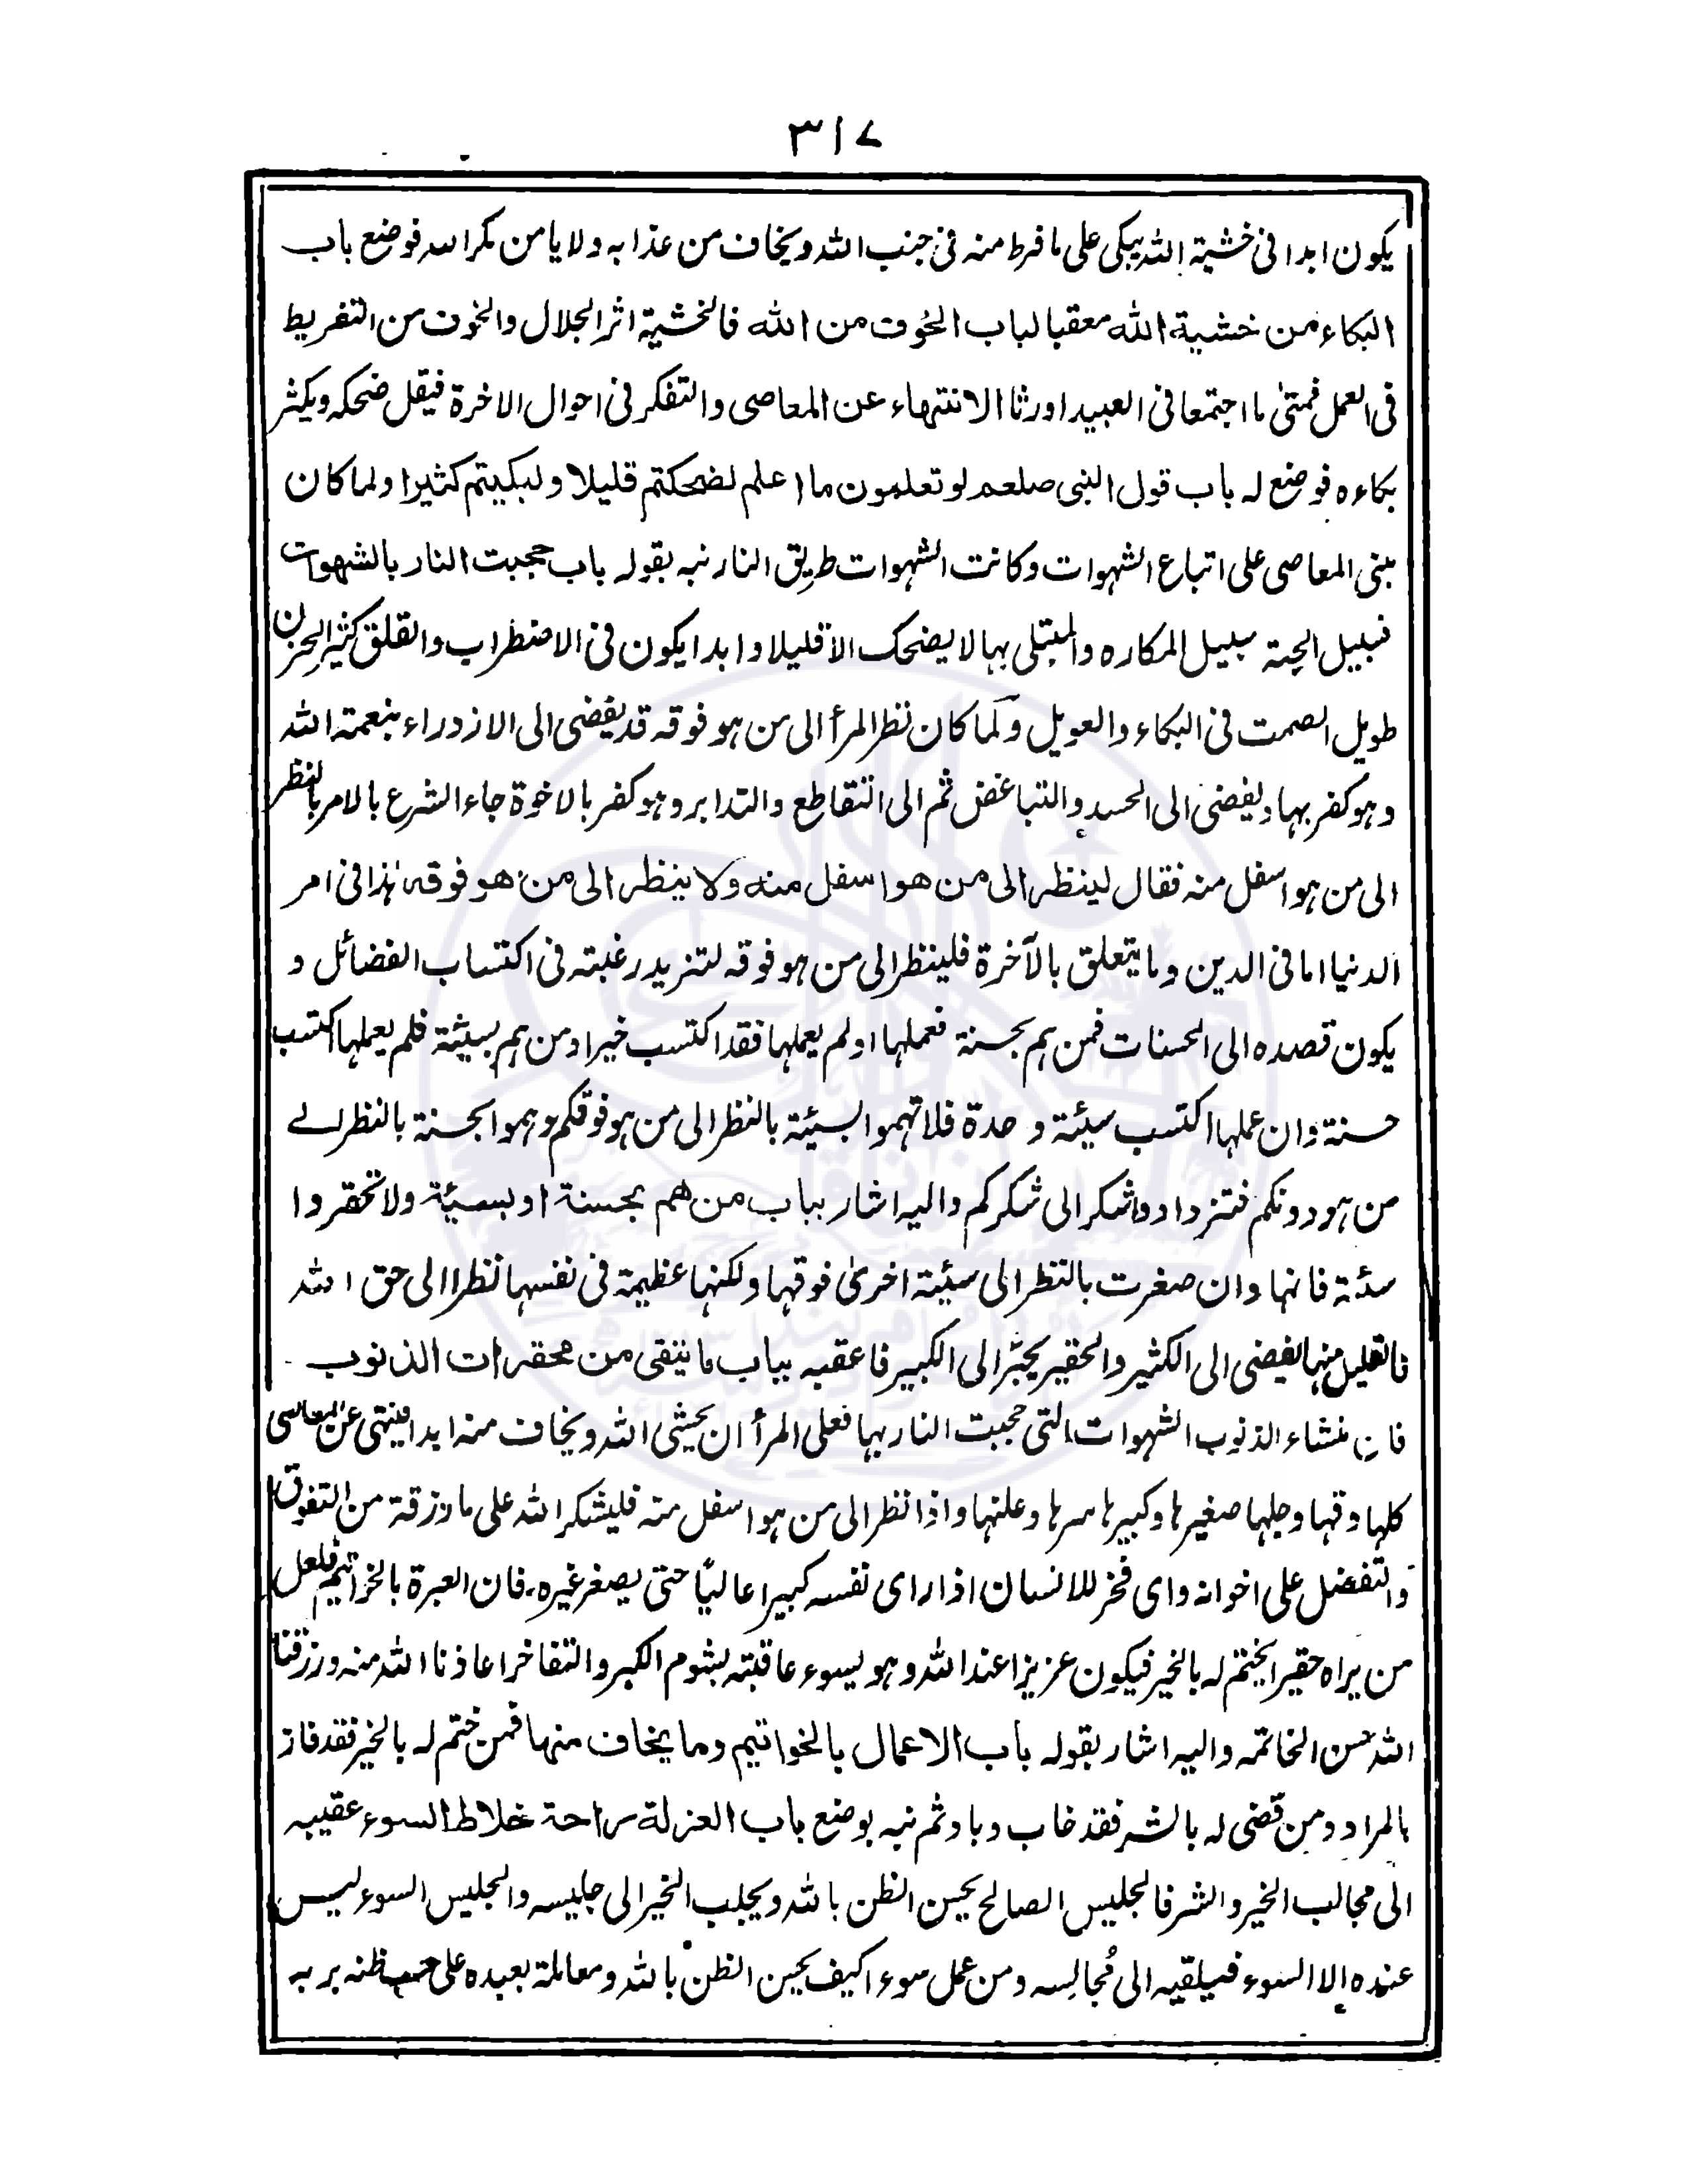 ٣١٧
يكون ابدا فى خشية الله يبكى على ما فرط منه فى جنب الله ويخاف من عذابه ولا يامن مكر الله فوضع باب
البكاء من خشية الله معقبا لباب الخوف من الله فالخشية اثر الجلال والخوف من التفريط
فى العمل فمتىٰ ما اجتمعا فى العبيد اورثا الانتهاء عن المعاصى والتفكر فى احوال الاخرة فيقل ضحكه ويكثر
بكاءه فوضع له باب قول النبى صلعم لو تعلمون ما اعلم لضحكتم قليلا ولبكيتم كثيرا ولما كان
مبنى المعاصى على اتباع الشهوات وكانت الشهوات طريق النار نبه بقوله باب حجبت النار بالشهوات
فسبيل الجنة سبيل المكاره والمبتلى بها لا يضحك الا قليلا وابدا يكون فى الاضطراب والقلق كثير الحزن
طويل الصمت فى البكاء والعويل ولما كان نظر المرأ الى من هو فوقه قد يفضى الى الازدراء بنعمة الله
وهو كفر بها ويفضى الى الحسد والتباغض ثم الى التقاطع والتدابر وهو كفر بالاخوة جاء الشرع بالامر بالنظر
الى من هو اسفل منه فقال لينظر الى من هو اسفل منه ولا ينظر الى من هو فوقه هٰذا فى امر
الدنيا اما فى الدين وما يتعلق بالآخرة فلينظر الى من هو فوقه لتزيد رغبته فى اكتساب الفضائل و
يكون قصده الى الحسنات فمن هم بحسنة فعملها او لم يعملها فقد اكتسب خيرا ومن هم بسيئة فلم يعملها اكتسب
حسنة وان عملها اكتسب سيئة و حدة فلا تهموا بسيئة بالنظر الى من هو فوقكم وهموا بحسنة بالنظر الے
من هو دونكم فتزدادوا شكرا الى شكركم واليه اشار بباب من هم بحسنة او بسيئة ولا تحقروا
سئة فانها وان صغرت بالنظر الى سيئة اخرىٰ فوقها ولكنها عظيمة فى نفسها نظرا الى حق الله
فالقليل منها يفضى الى الكثير والحقير يجرّ الى الكبير فاعقبه بباب ما يتقى من محقرات الذنوب
فان منشاء الذنوب الشهوات التى حجبت النار بها فعلى المرأ ان يخشى الله ويخاف منه ابدا فينتهى عن المعاصى
كلها دقها وجلها صغيرها وكبيرها سرها وعلنها واذا نظر الى من هو اسفل منه فليشكر الله على ما رزقة من التفوق
والتفضل على اخوانه واى فخر للانسان اذا راى نفسه كبيرا عاليًا حتى يصغر غيره، فان العبرة بالخواتيم فلعل
من يراه حقيرا يختم له بالخير فيكون عزيزا عند الله وهو يسوء عاقبته بشوم الكبر والتفاخر اعاذنا الله منه ورزقنا
الله حسن الخاتمه واليه اشار بقوله باب الاعمال بالخواتيم وما يخاف منها فمن ختم له بالخير فقد فاز
بالمراد ومن قضى له بالشر فقد خاب وباد ثم نبه بوضع باب العزلة راحة خلاط السوء عقيبه
الى مجالب الخير والشر فالجليس الصالح يحسن الظن بالله ويجلب الخير الى جليسه والجليس السوء ليس
عنده الا السوء فيلقيه الى مُجالِسه ومن عمل سوء اكيف يحسن الظن بالله ومعاملة بعبده على حسب ظنه بربه